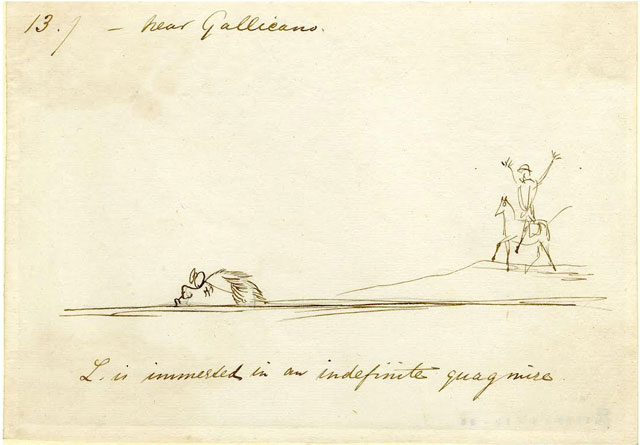 13.) — near Gallicano.
L. is immersed in an indefinite quagmire.